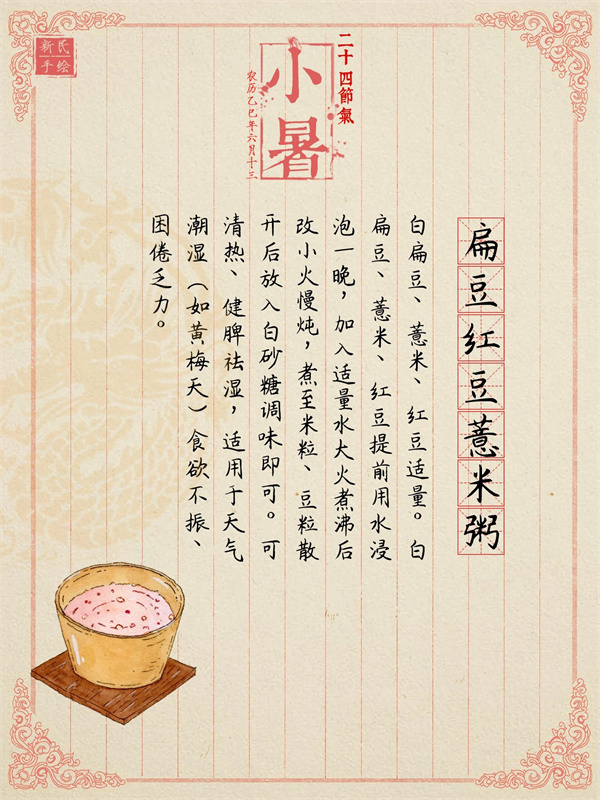 新民
手绘
二十四節氣
小暑
农历乙巳年六月十三
扁豆红豆薏米粥
白扁豆、薏米、红豆适量。白
扁豆、薏米、红豆提前用水浸
泡一晚，加入适量水大火煮沸后
改小火慢炖，煮至米粒、豆粒散
开后放入白砂糖调味即可。可
清热、健脾祛湿，适用于天气
潮湿（如黄梅天）食欲不振、
困倦乏力。